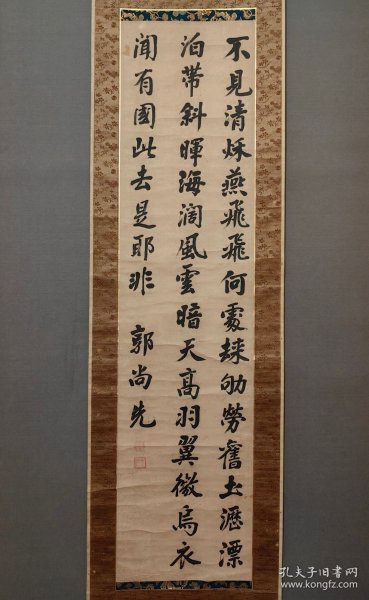 不見清秌燕飛飛何處歸劬勞舊土瀝漂
泊帶斜暉海闊風雲暗天高羽翼微烏衣
聞有國此去是耶非 郭尚先
孔夫子旧书网
www.kongfz.com